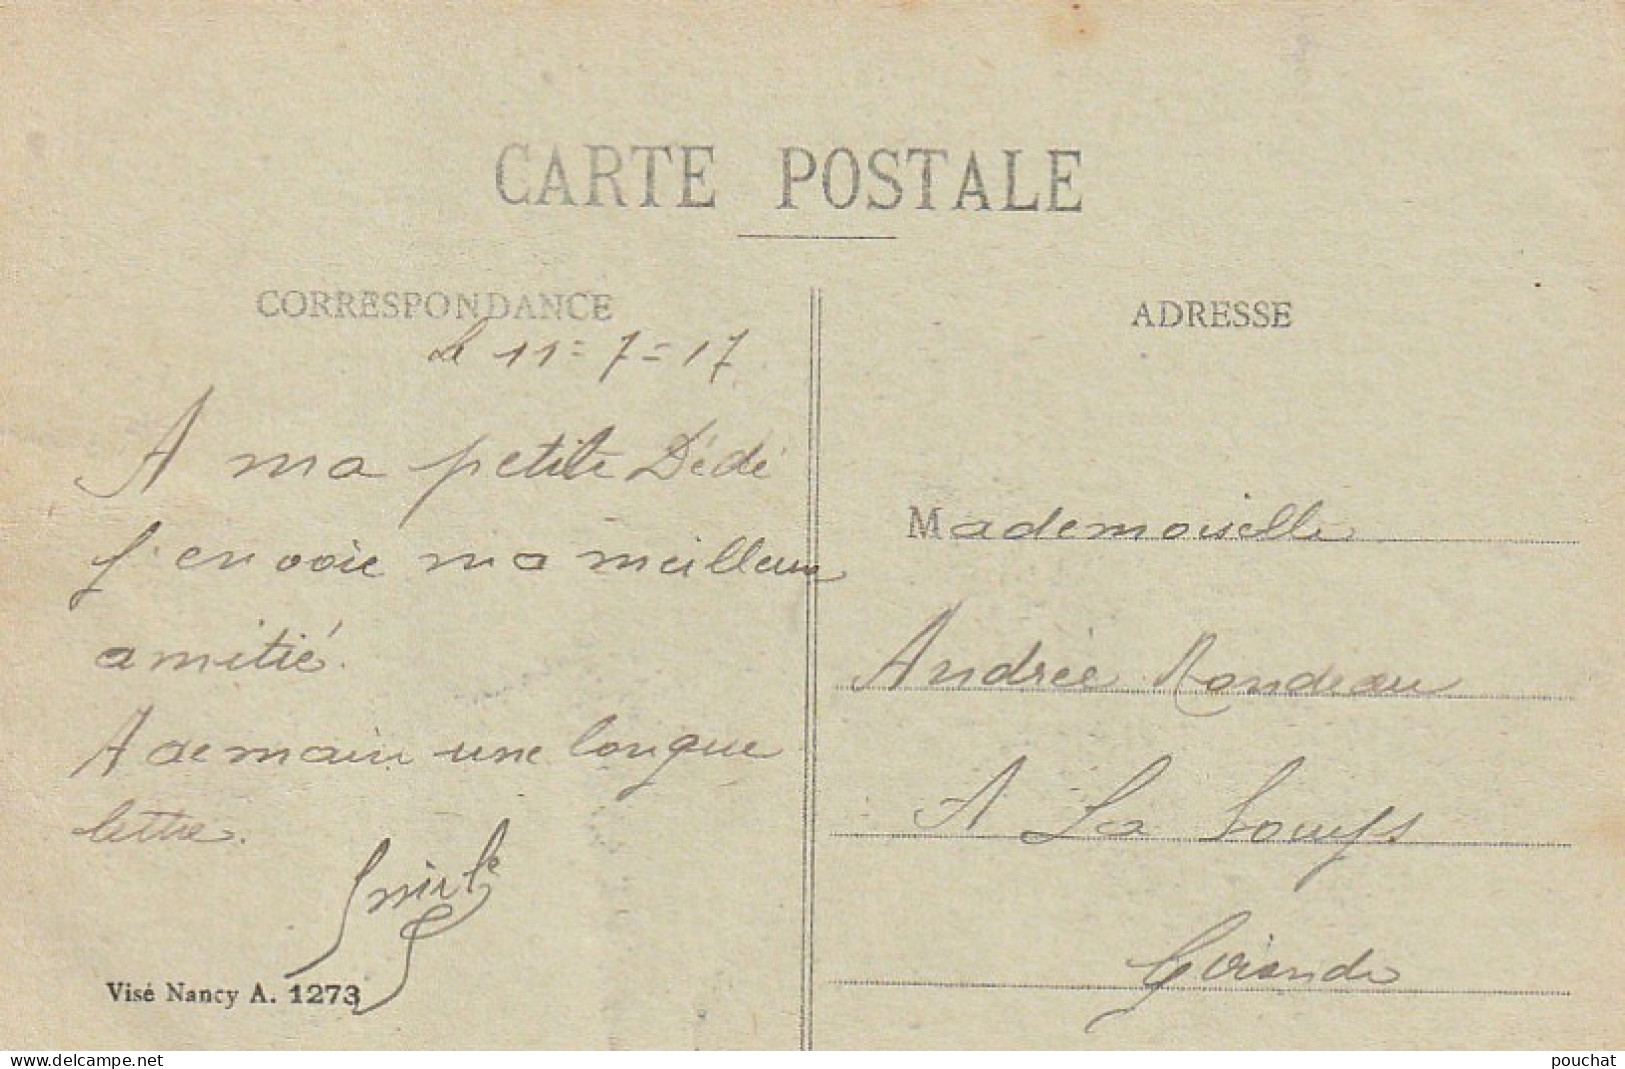 CARTE POSTALE
CORRESPONDANCE
Le 11=7=17
A ma petite Dédé
J'envoie ma meilleure
amitié.
A demain une longue
lettre.
Visé Nancy A. 1273
ADRESSE
Mademoiselle
Andrée Rondeau
A La
Gironde
www.delcampe.net
pouchat